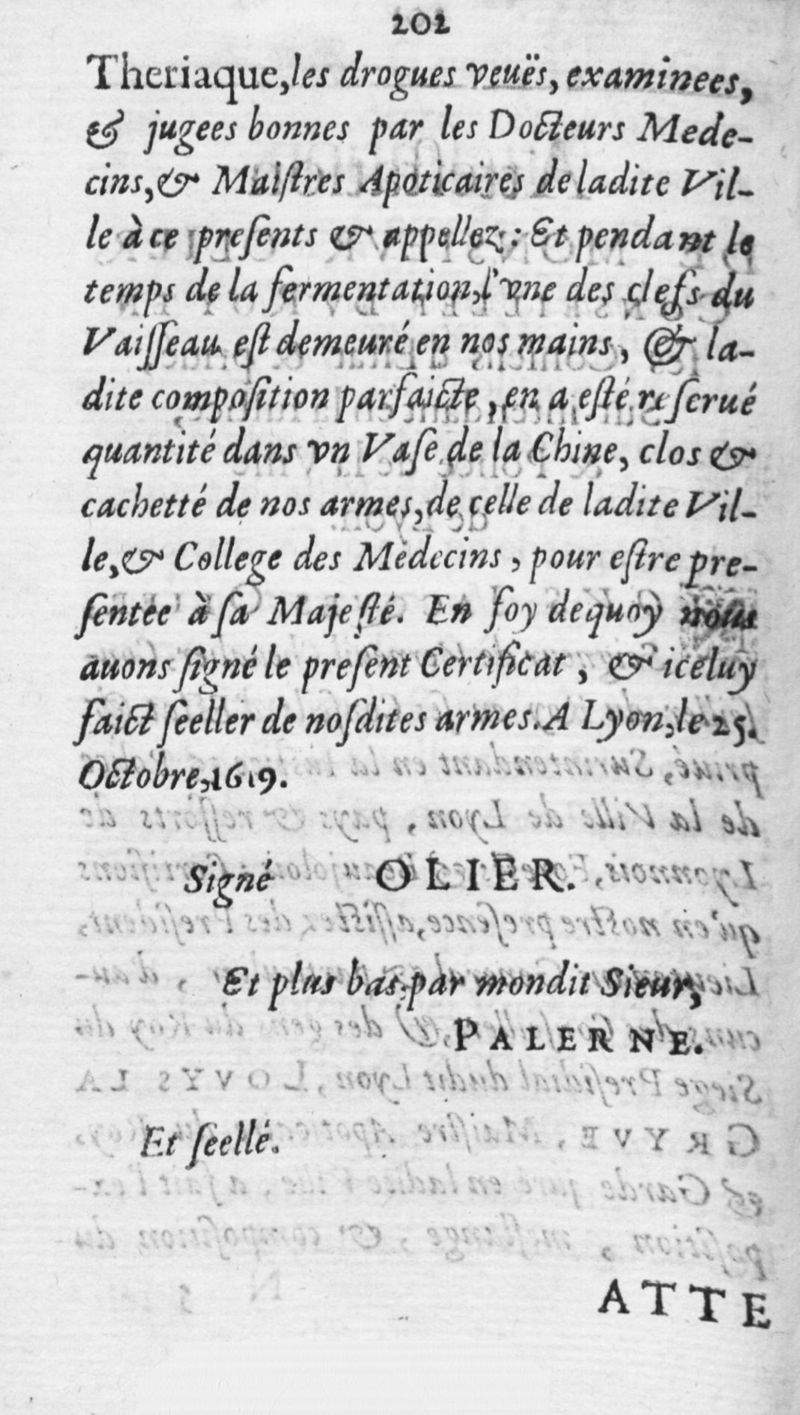 202
Theriaque, les drogues veuës, examinees,
& jugees bonnes par les Docteurs Mede-
cins, & Maiſtres Apoticaires de ladite Vil-
le à ce preſents & appellez : Et pendant le
temps de la fermentation, l'vne des clefs du
Vaiſſeau eſt demeuré en nos mains, & la-
dite compoſition parfaicte, en a eſté reſerué
quantité dans vn Vaſe de la Chine, clos &
cachetté de nos armes, de celle de ladite Vil-
le, & College des Medecins, pour eſtre pre-
ſentée à ſa Majeſté. En foy dequoy nous
auons ſigné le preſent Certificat, & iceluy
faict ſeeller de noſdites armes. A Lyon, le 25.
Octobre, 1619.
Signé OLIER.
Et plus bas, par mondit Sieur,
PALERNE.
Et ſeellé.
ATTE